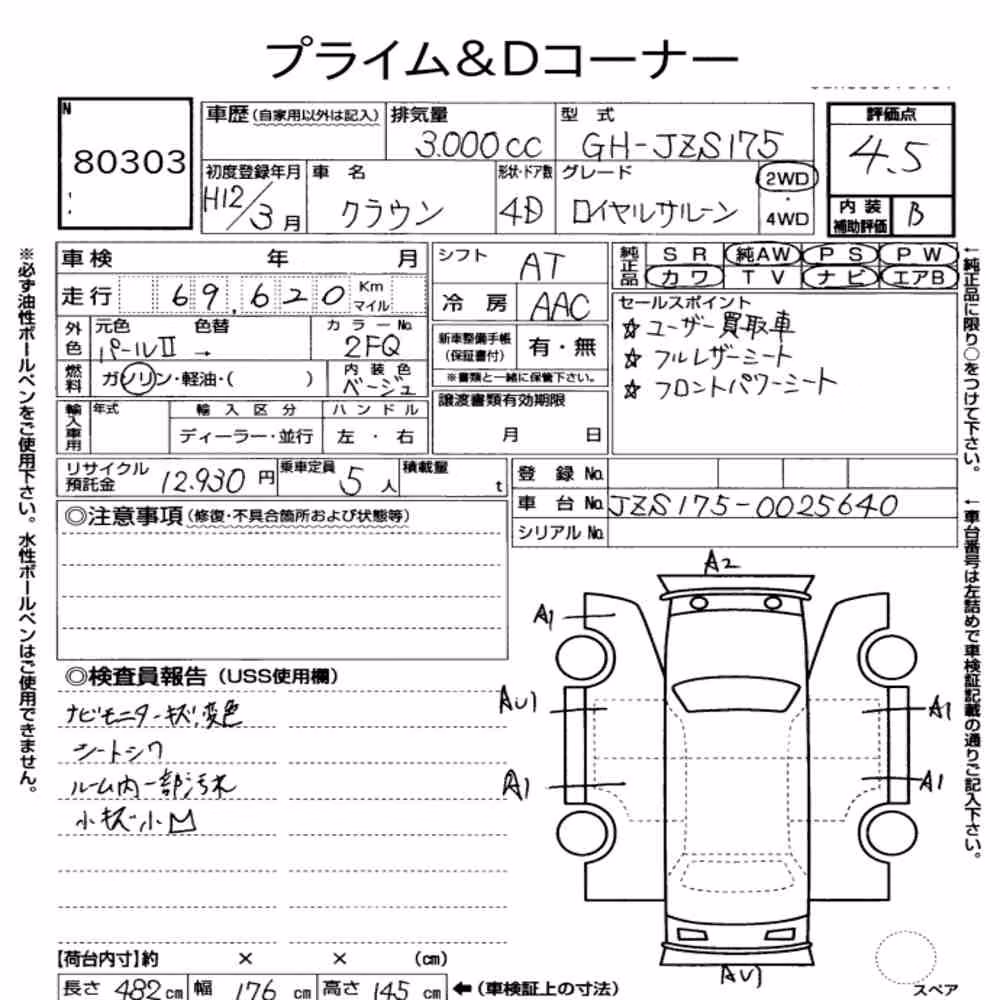 プライム&Dコーナー
N
80303
車歴(自家用以外は記入)
排気量
3.000cc
型式
GH-JZS175
評価点
4.5
初度登録年月
H12/3月
車名
クラウン
形状・ドア数
4D
グレード
ロイヤルサルーン
2WD
・
4WD
内装補助評価
B
車検 年 月
シフト
AT
純正品
SR 純AW PS PW
カワ TV ナビ エアB
走行 69,620 Km マイル
冷房
AAC
セールスポイント
☆ユーザー買取車
☆フルレザーシート
☆フロントパワーシート
外色
元色 色替
パールⅡ →
カラーNo.
2FQ
新車整備手帳(保証書付)
有・無
※書類と一緒に保管下さい。
燃料
ガソリン・軽油・( )
内装色
ベージュ
譲渡書類有効期限
月 日
輸入車用
年式
輸入区分
ディーラー・並行
ハンドル
左・右
リサイクル預託金
12.930円
乗車定員
5人
積載量
t
登録No.
車台No.
JZS175-0025640
シリアルNo.
◎注意事項(修復・不具合箇所および状態等)
◎検査員報告(USS使用欄)
ナビモニターキズ,変色
シートシワ
ルーム内一部汚れ
小キズ小凹
A2
A1
AU1
A1
A1
A1
AU1
スペア
【荷台内寸】約 × × (cm)
長さ 482cm 幅 176cm 高さ 145cm ←(車検証上の寸法)
※必ず油性ボールペンをご使用下さい。水性ボールペンはご使用できません。
←純正品に限り○をつけて下さい。
←車台番号は左詰めで車検証記載の通りご記入下さい。